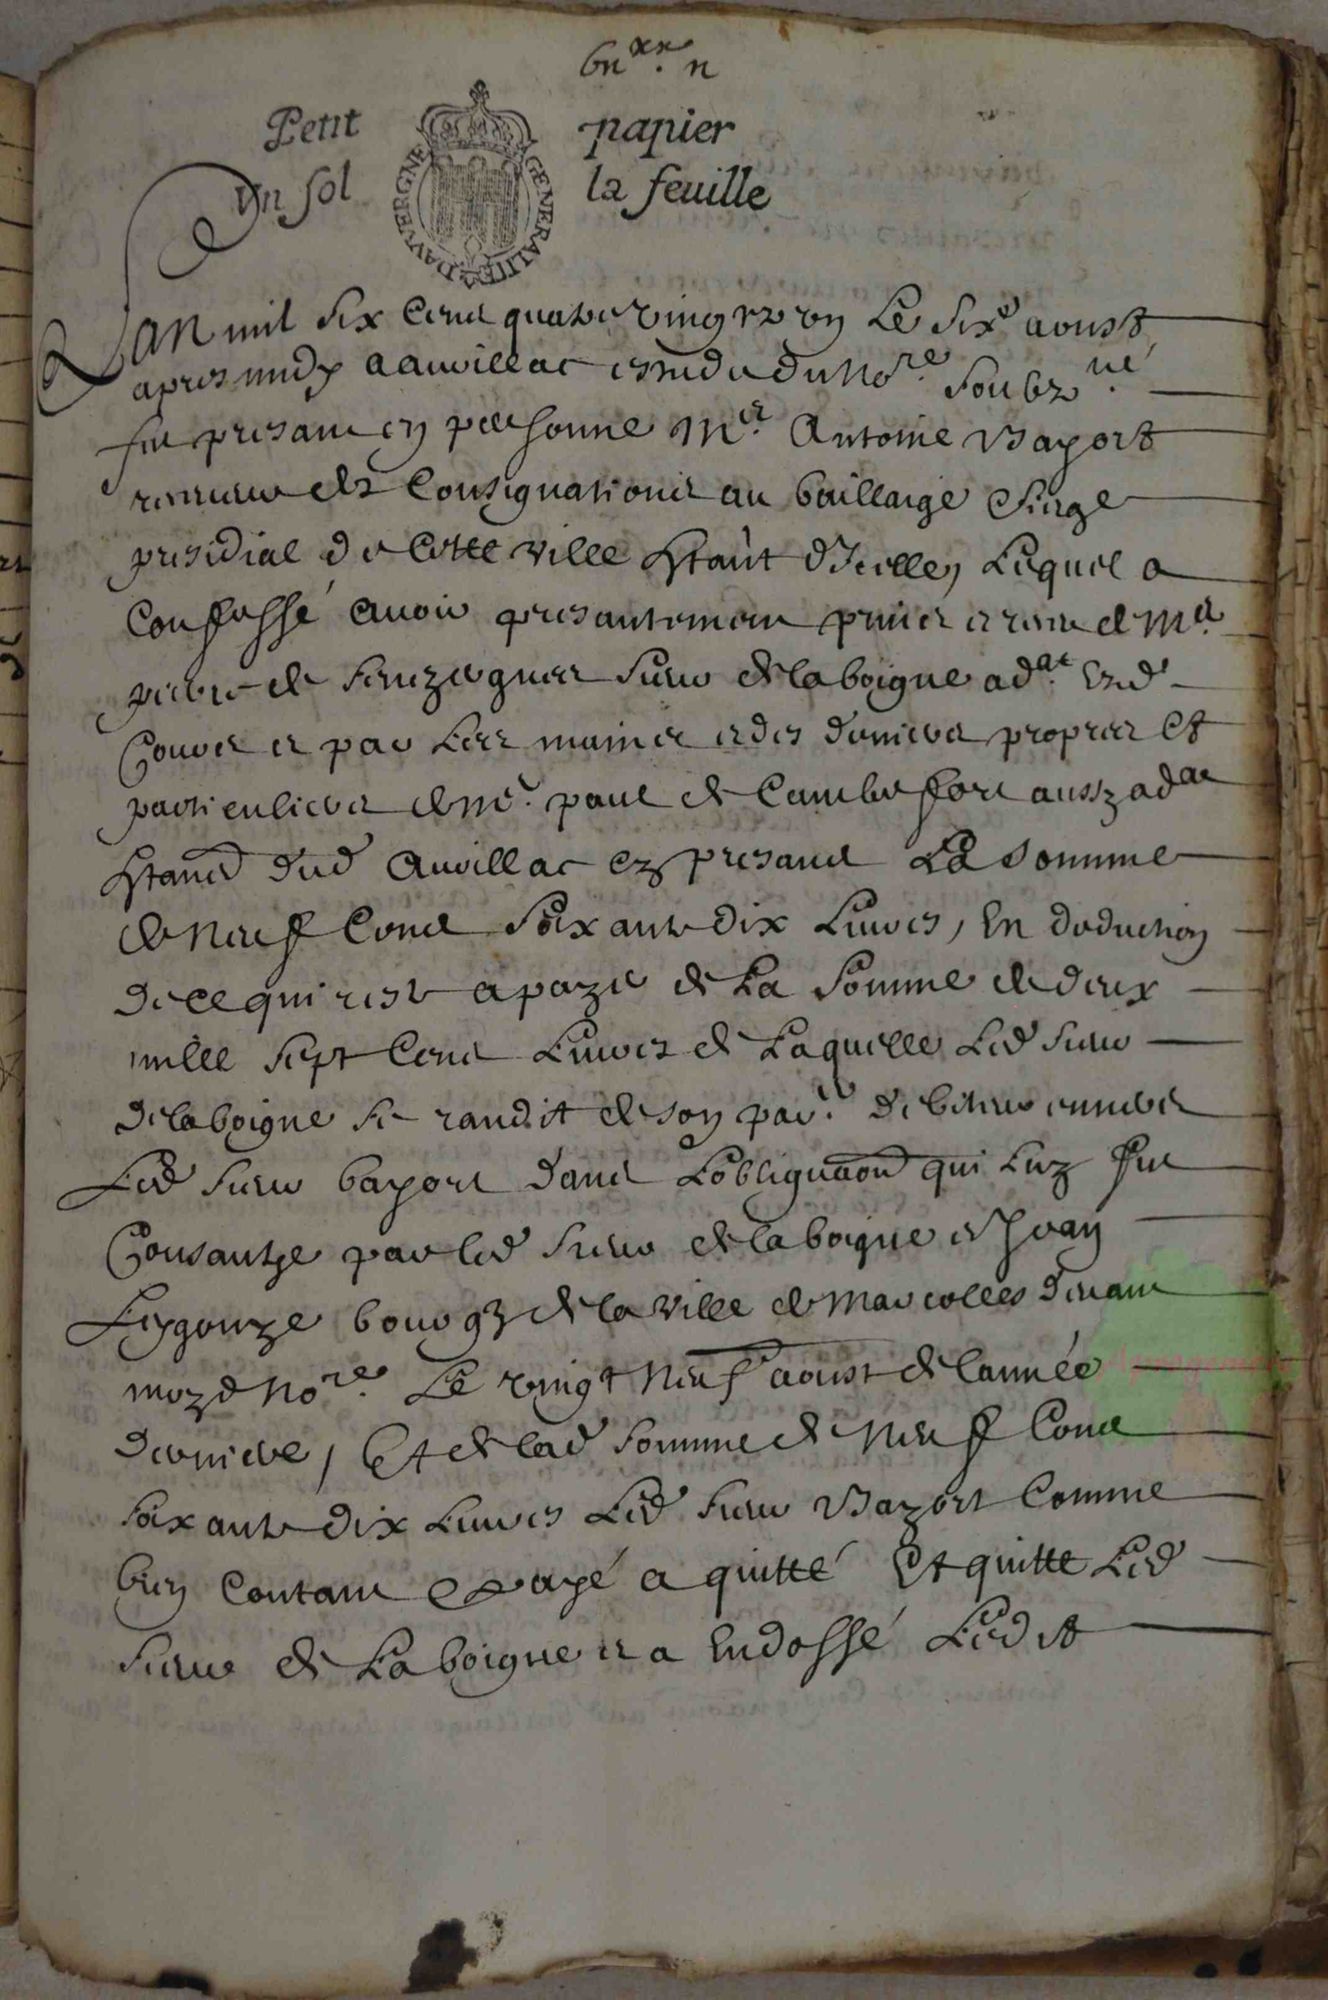 Petit papier
Un sol la feuille
DAVVERGNE GENERALITE
Lan mil six cent quatre vingtz un Le six.e aoust
apres midy a aurillac estude du No.re soubz.né
fut presant en personne M.e Antoine Bayort
receveur des Consignations au bailliage Siege
presidial de Cette ville h̃tant d'Icelle, Lequel a
Confessé avoir presantement prins et receu de M.e
pierre de senezergues sieur de la boigne ad.at Ez d.
Cours et par Les mains et des deniers propres Et
particuliers de M.e paul de Cambefort aussy ad.at
h̃tant dud Aurillac Ez presant La somme
de Neuf Cent soixante dix Livres, En deduction
de ce qui reste a payer de La somme de deux
mille sept Cent Livres de Laquelle Led sieur
de la boigne se randit de son par.er debiteur envers
Led sieur bayort dans Lobligaõn qui luy fut
Consantye par led sieur de la boigne et Jean
Leygonye bourgz de la ville de Marcolles devant
moyd No.re Le vingt Neuf aoust de lannée
derniere, Et de lad somme de Neuf Cent
soixante dix Livres Led sieur Bayort Comme
bien Contant & payé a quitté Et quitte Led
sieur de La boigne et a Endossé Ledit